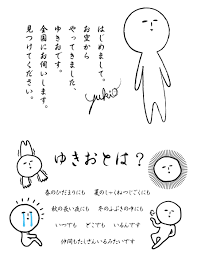 はじめまして。
お空から
やってきました、
ゆきおです。
全国にお伺いします。
見つけてください。
yukio
ゆきおとは？
春のひだまりにも 夏のしゃくねつごくにも
秋の長い夜にも 冬のふぶきの中にも
いつでも どこでも いるんです
仲間もたくさんいるみたいです